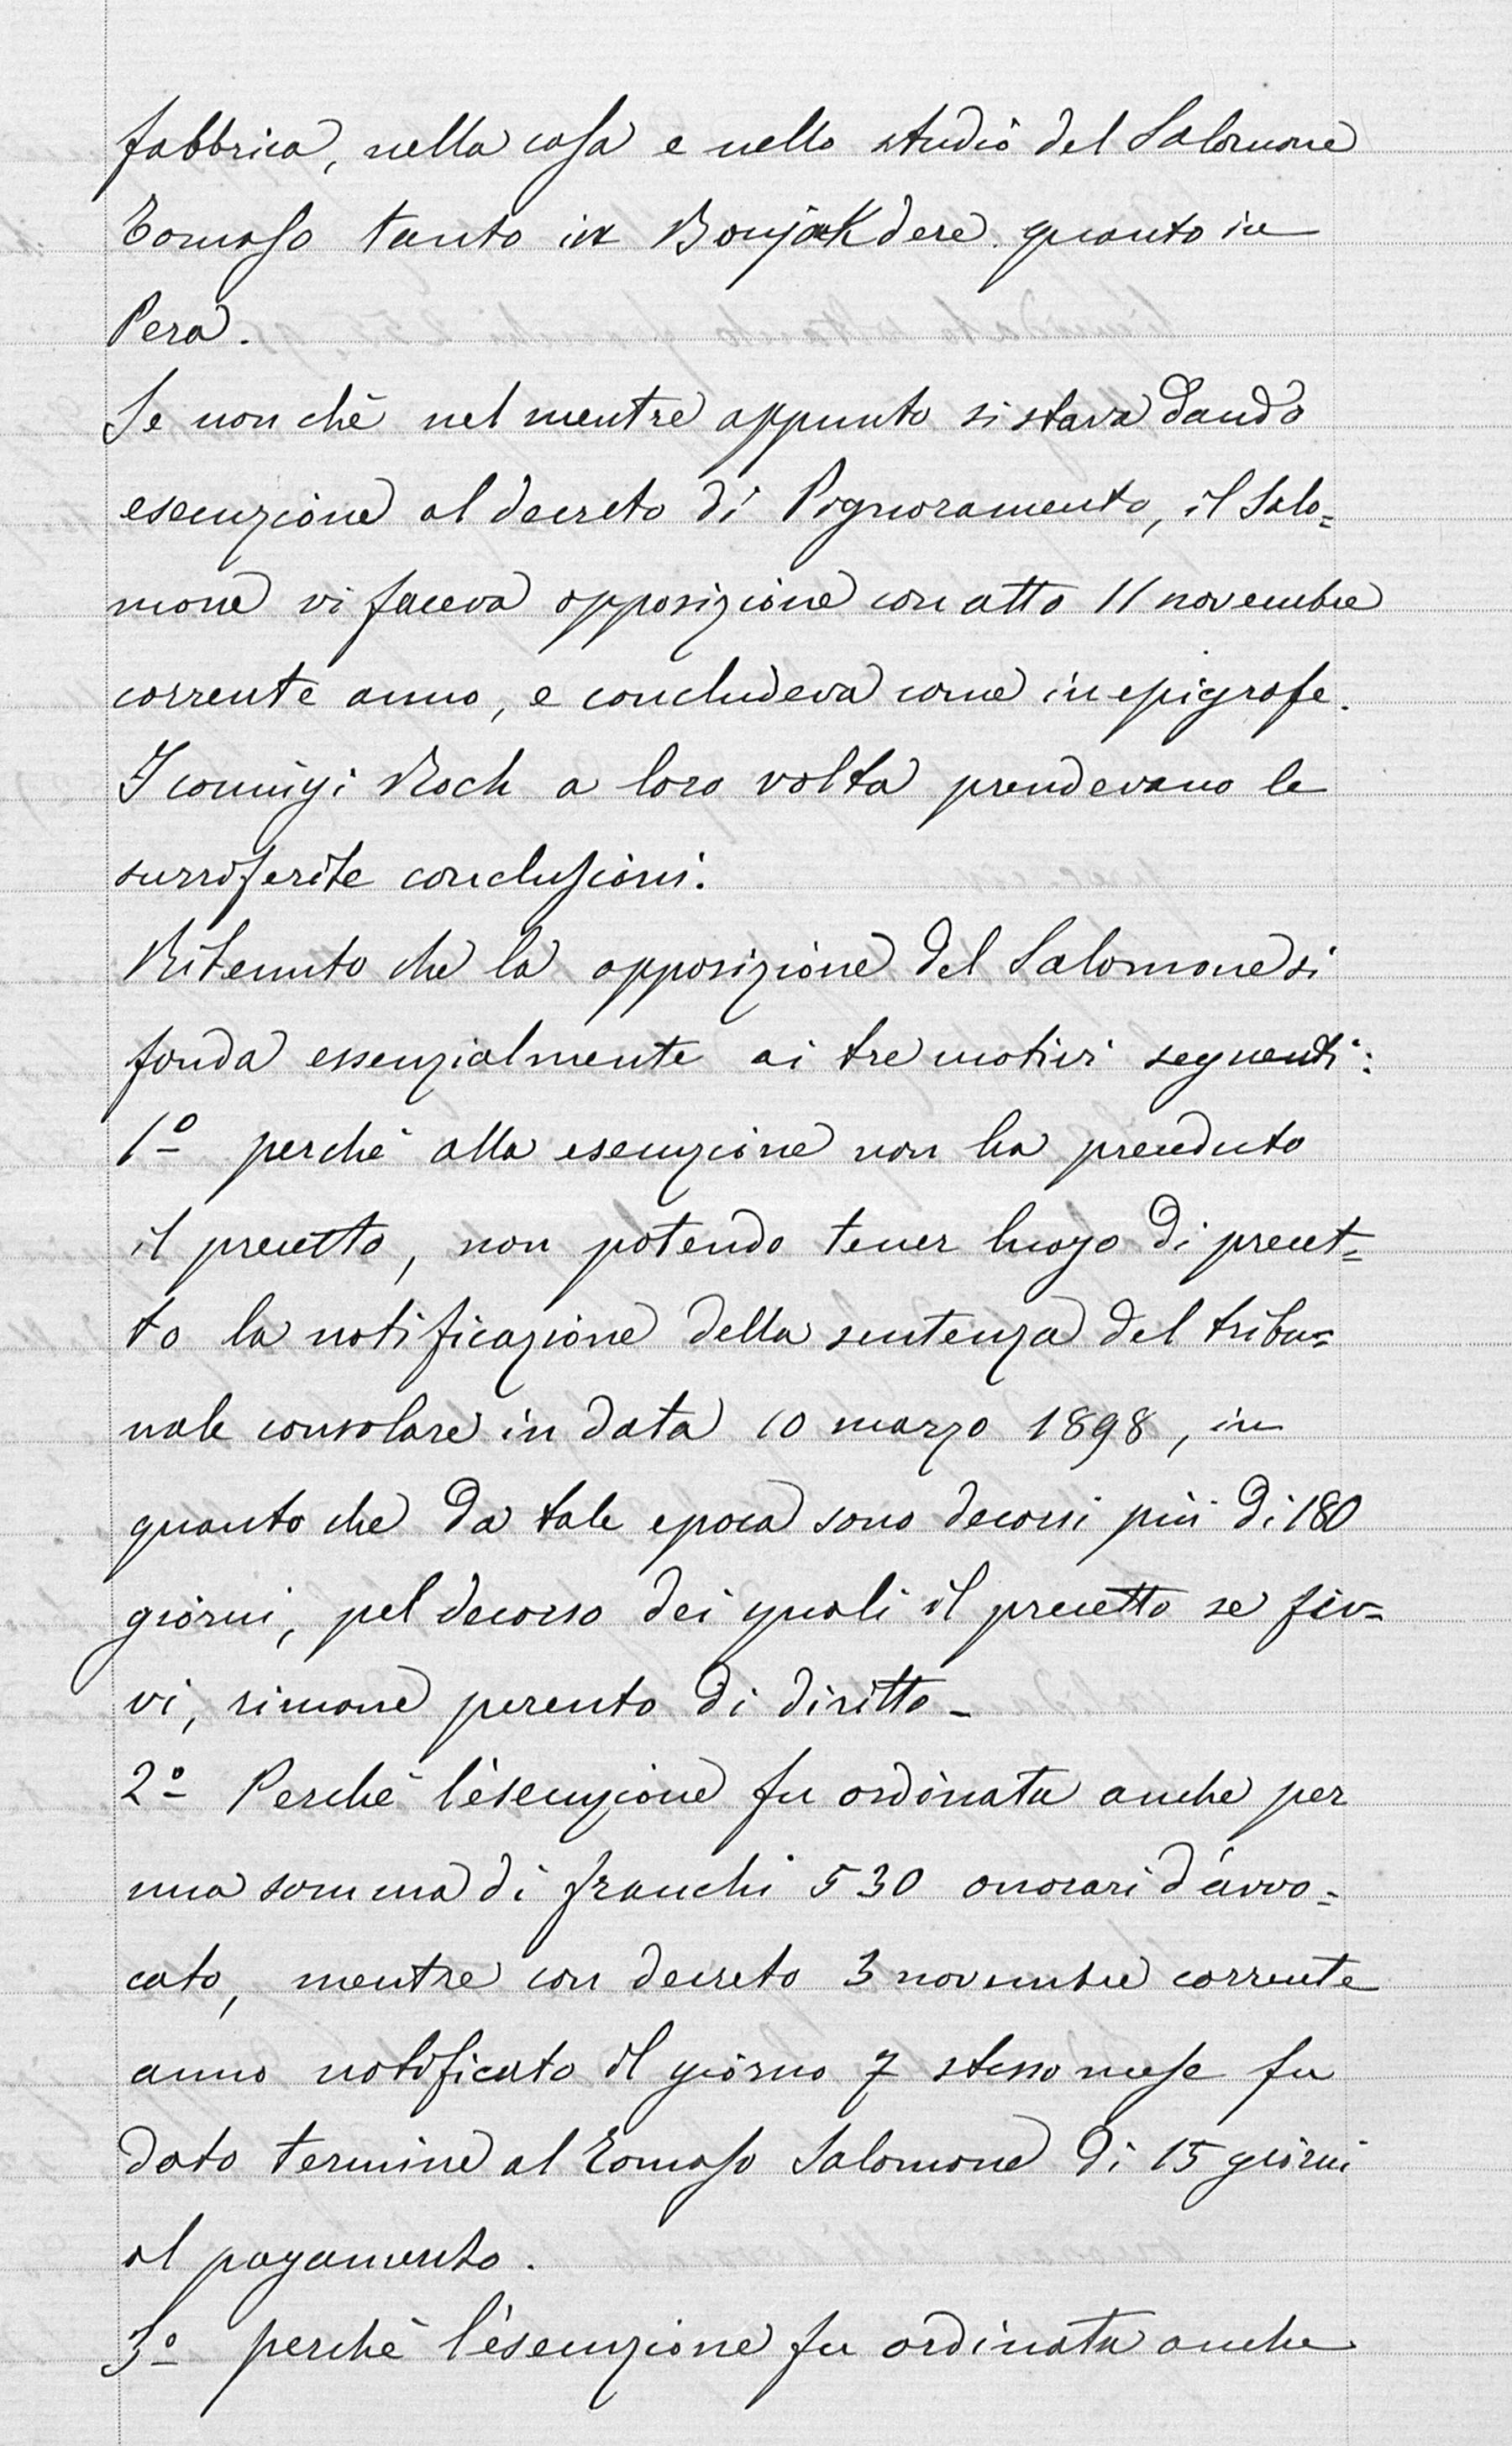 fabbrica, nella casa e nello studio del Salomone
Tomaso tanto in Boujukdere quanto in
Pera.
Se non chè nel mentre appunto si stava dando
esecuzione al decreto di Pignoramento, il Salo=
mone vi faceva opposizione con atto 11 novembre
corrente anno, e concludeva come in epigrafe.
I coniugi Roch a loro volta prendevano le
surriferite conclusioni.
Ritenuto che la opposizione del Salomone si
fonda essenzialmente ai tre motivi seguenti:
1º perchè alla esecuzione non ha preceduto
il precetto, non potendo tener luogo di precet=
to la notificazione della sentenza del tribu=
nale consolare in data 10 marzo 1898, in
quanto che da tale epoca sono decorsi più di 180
giorni, pel decorso dei quali il precetto se siv=
vi, rimane perento di diritto -
2º Perchè l'esecuzione fu ordinata anche per
una somma di franchi 530 onorari d'avvo=
cato, mentre con decreto 3 novembre corrente
anno notificato il giorno 7 stesso mese fu
dato termine al Tomaso Salomone di 15 giorni
al pagamento.
3º perchè l'esecuzione fu ordinata anche